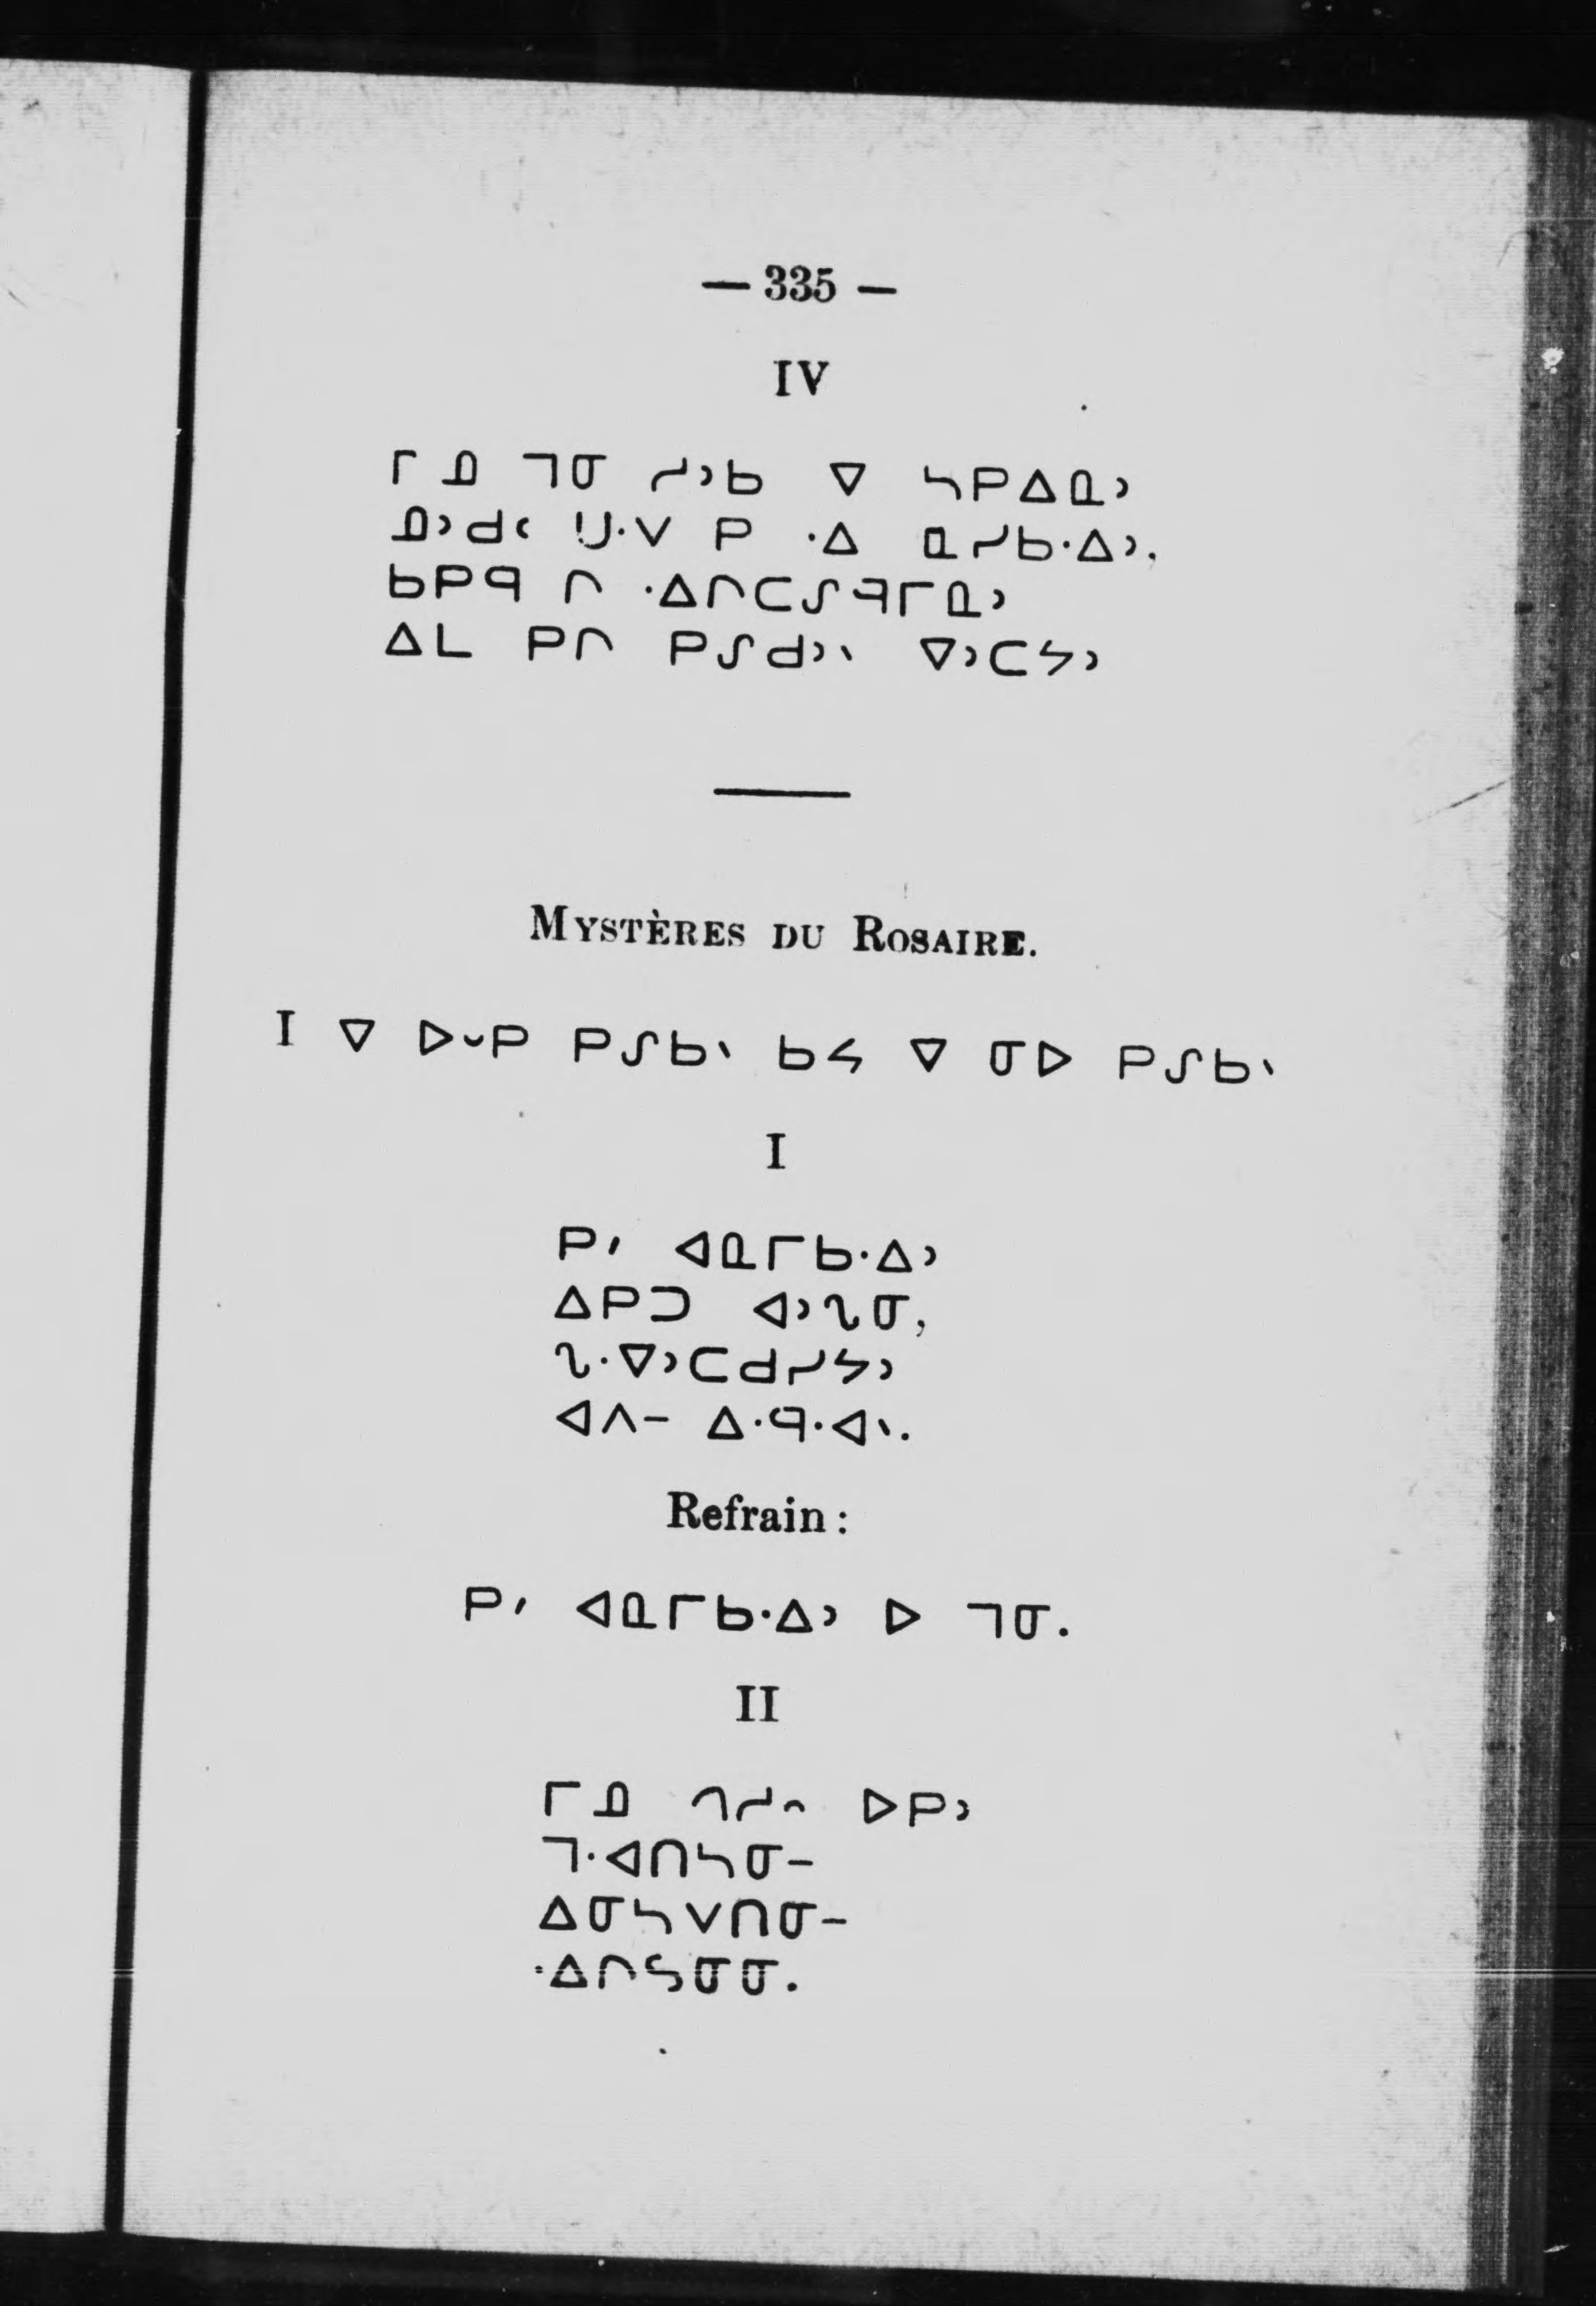 — 335 —
IV
ᒥ ᓄ ᒣᓂ ᓯᐣᑲ ᐁ ᓴᑭᐃᓇᐣ
ᓄᐣᑯᑉ ᑌᐧᐯ ᑭ ᐧᐃ ᓇᓯᑲᐧᐃᐣ,
ᑲᑭᑫ ᒋ ᐧᐃᒋᑕᔑᑫᒥᓇᐣ
ᐃᒪ ᑭᒋ ᑭᔑᑯᐣᐠ ᐁᐣᑕᔭᐣ
MYSTÈRES DU ROSAIRE.
I ᐁ ᐅᐢᑭ ᑭᔑᑲᐠ ᑲᔦ ᐁ ᓂᐅ ᑭᔑᑲᐠ
I
ᑭᐟ ᐊᓇᒥᑲᐧᐃᐣ
ᐃᑭᑐ ᐊᐣᔐᓂ,
ᔐᐧᐁᐣᑕᑯᓯᔭᐣ
ᐊᐱᐨ ᐃᐧᑫᐧᐊᐠ.
Refrain :
ᑭᐟ ᐊᓇᒥᑲᐧᐃᐣ ᐅ ᒣᓂ.
II
ᒥ ᓄ ᒉᓯᐢ ᐅᑭᐣ
ᒣᐧᐊᑎᓴᓂᐨ
ᐃᓂᓴᐯᑎᓂᐨ
ᐧᐃᒋᔕᓂᓂ.